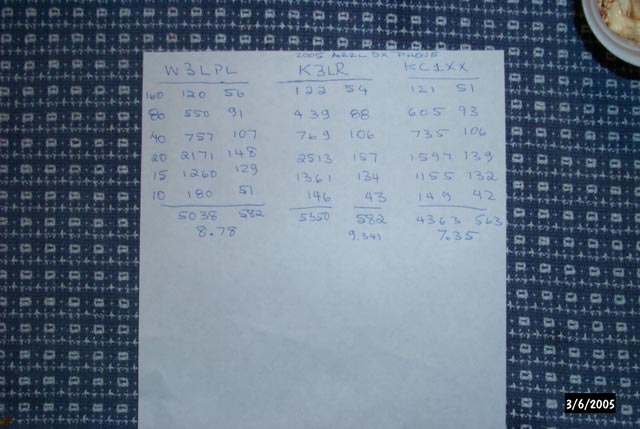 2005 ARRL DX PHONE
W3LPL K3LR KC1XX
160 120 56 122 54 121 51
80 550 91 439 88 605 93
40 757 107 769 106 735 106
20 2171 148 2513 157 1597 139
15 1260 129 1361 134 1155 132
10 180 51 146 43 149 42
5038 582 5350 582 4363 563
8.78 9.341 7.35
3/6/2005